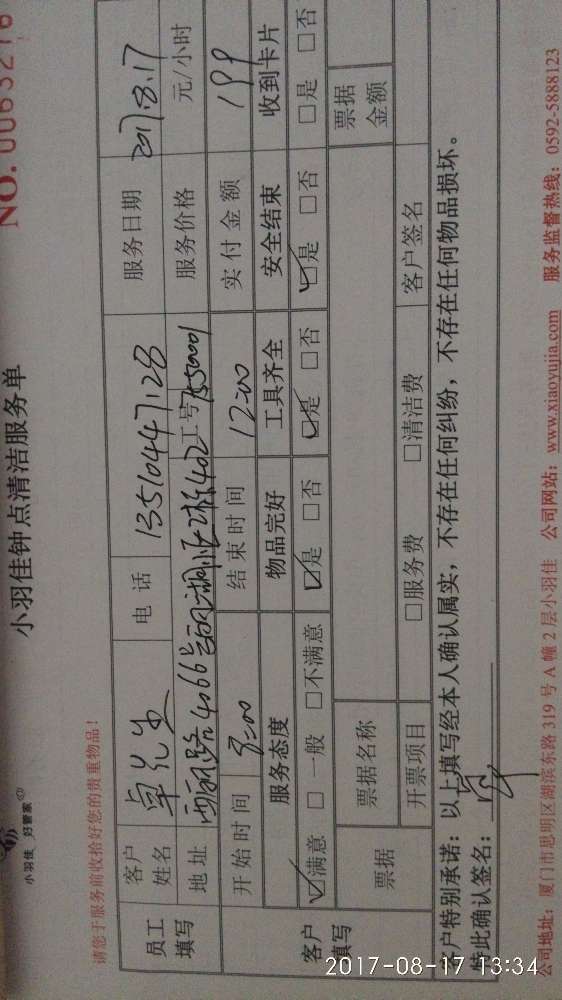 小羽佳 好管家
小羽佳钟点清洁服务单
NO. 0063276
请您于服务前收拾好您的贵重物品！
员工填写 客户姓名 卓先生 电话 13510447128 服务日期 2017.8.17
地址 路4066号 402 工号 服务价格 元/小时
客户填写 开始时间 结束时间 12:00 实付金额 199
服务态度 物品完好 工具齐全 安全结束 收到卡片
☑满意 □一般 □不满意 ☑是 □否 ☑是 □否 ☑是 □否 □是 □否
票据 票据名称 票据金额
开票项目 □服务费 □清洁费 客户签名
客户特别承诺：以上填写经本人确认属实，不存在任何纠纷，不存在任何物品损坏。
特此确认签名：
公司地址：厦门市思明区湖滨东路319号A幢2层小羽佳 公司网站：www.xiaoyujia.com 服务监督热线：0592-5888123
2017-08-17 13:34